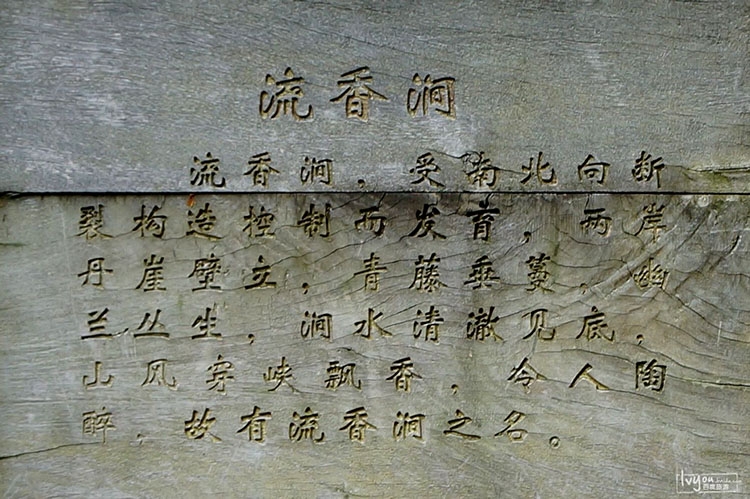 流香涧
流香涧，受南北向断
裂构造控制而发育，两岸
丹崖壁立，青藤垂蔓，幽
兰丛生，涧水清澈见底，
山风穿峡飘香，令人陶
醉，故有流香涧之名。
lvyou.baidu.com
百度旅游